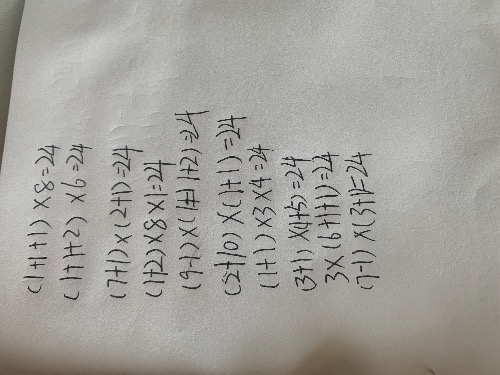 (1+1+1)×8=24
(1+1+2)×6=24
(7+1)×(2+1)=24
(1+2)×8×1=24
(9-1)×(1+1+2)=24
(2+10)×(1+1)=24
(1+1)×3×4=24
(3+1)×(1+5)=24
3×(6+1+1)=24
(7-1)×(3+1)=24